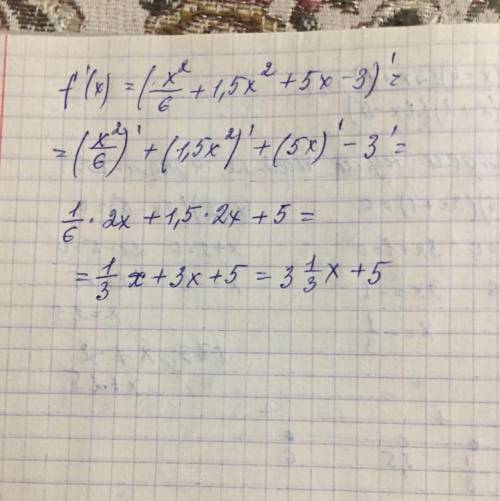 f'(x) = (x²/6 + 1,5x² + 5x - 3)' =
= (x²/6)' + (1,5x²)' + (5x)' - 3' =
1/6 · 2x + 1,5 · 2x + 5 =
= 1/3 x + 3x + 5 = 3 1/3 x + 5